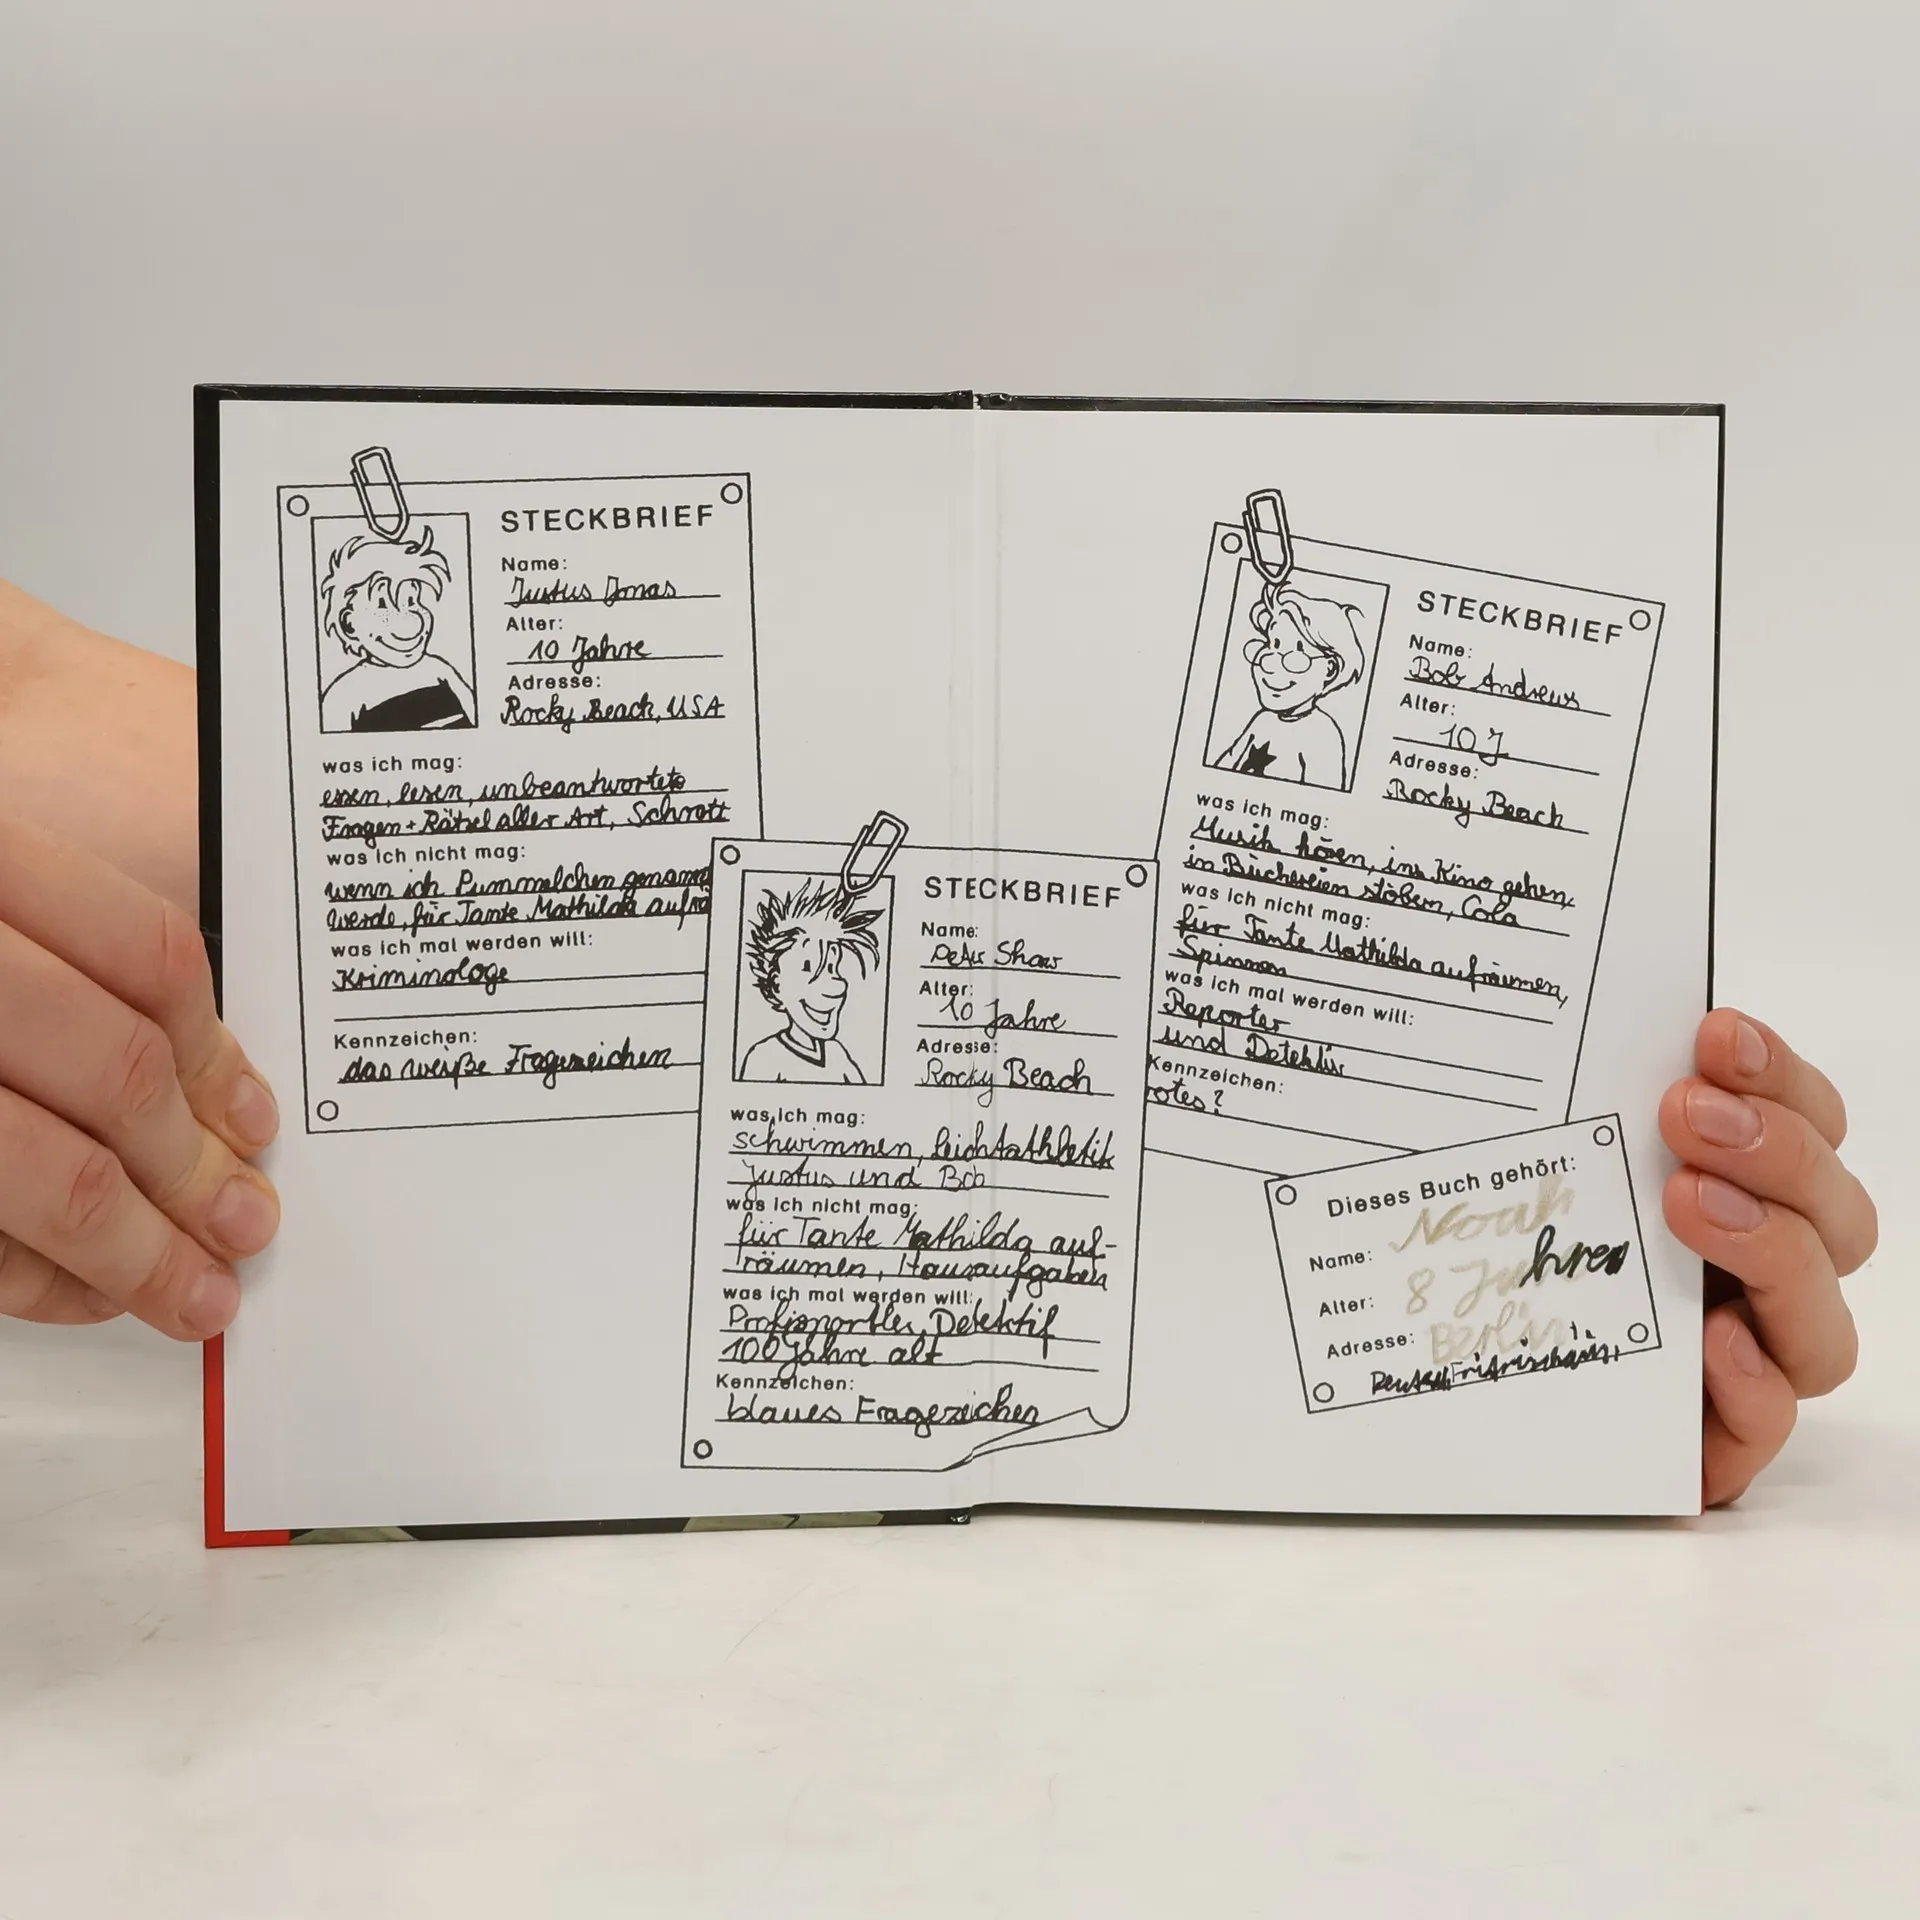 STECKBRIEF
Name:
Justus Jonas
Alter:
10 Jahre
Adresse:
Rocky Beach, USA
was ich mag:
essen, lesen, unbeantwortete
Fragen + Rätsel aller Art, Schrott
was ich nicht mag:
wenn ich Pummelchen genannt
werde, für Tante Mathilda aufrä
was ich mal werden will:
Kriminologe
Kennzeichen:
das weiße Fragezeichen
STECKBRIEF
Name:
Peter Shaw
Alter:
10 Jahre
Adresse:
Rocky Beach
was ich mag:
schwimmen, Leichtathletik
Justus und Bob
was ich nicht mag:
für Tante Mathilda auf-
räumen, Hausaufgaben
was ich mal werden will:
Profisportler, Detektiv
100 Jahre alt
Kennzeichen:
blaues Fragezeichen
STECKBRIEF
Name:
Bob Andrews
Alter:
10 J
Adresse:
Rocky Beach
was ich mag:
Musik hören, ins Kino gehen,
in Büchereien stöbern, Cola
was ich nicht mag:
für Tante Mathilda aufräumen,
Spinnen
was ich mal werden will:
Reporter
und Detektiv
Kennzeichen:
rotes ?
Dieses Buch gehört:
Name: Noah
Alter: 8 Jahren
Adresse: Berlin